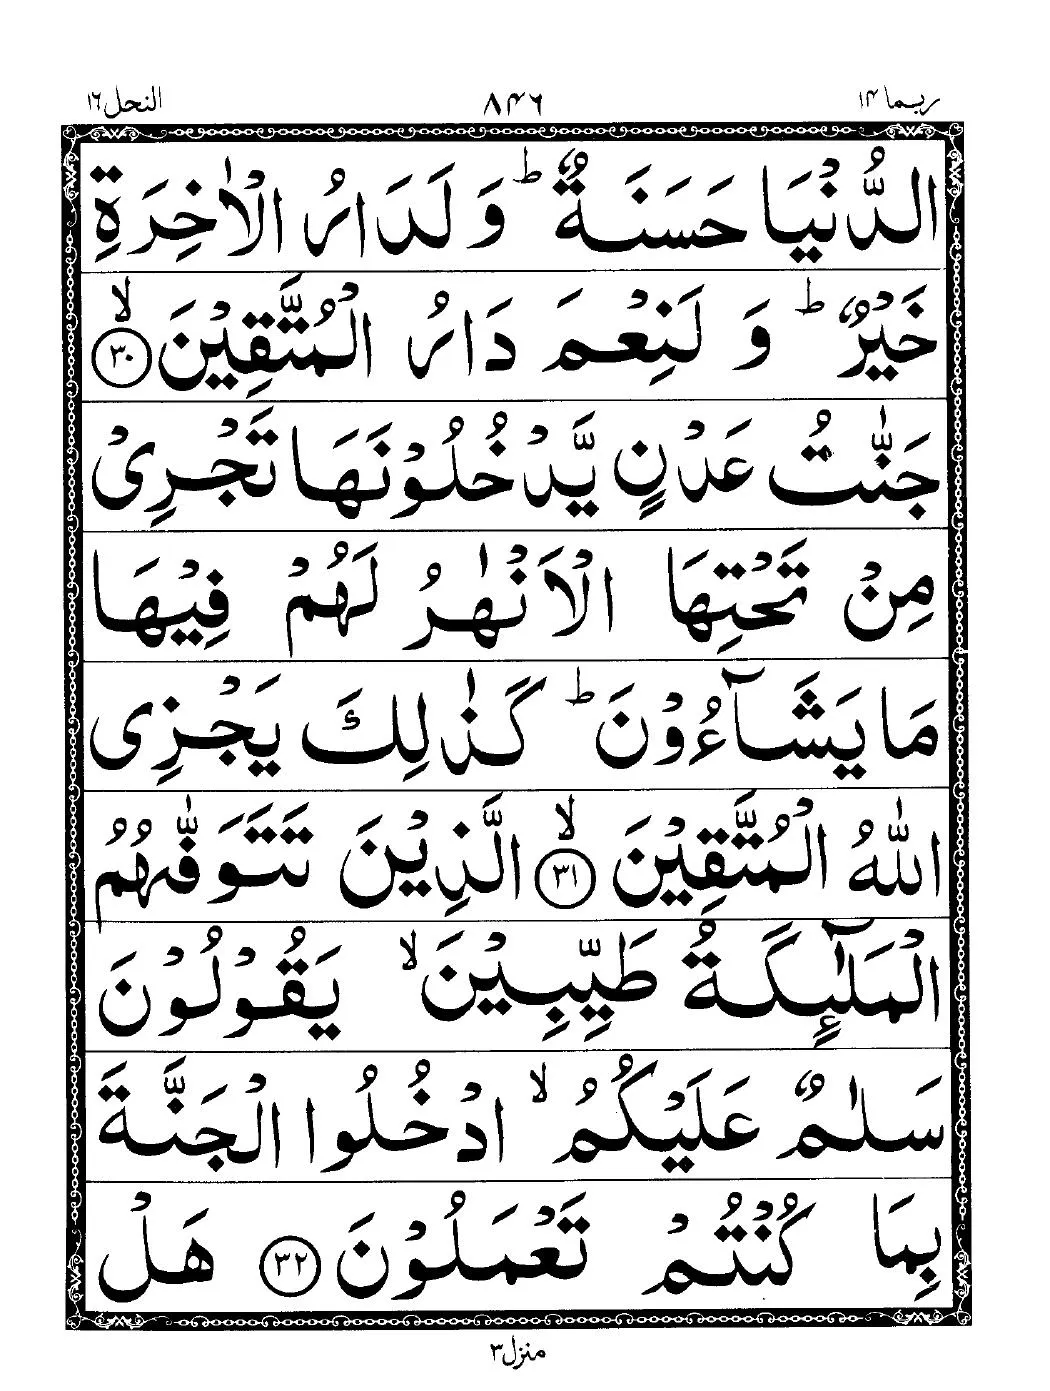 ربما ۱۴ ۸۴۶ النحل ۱۶
الدُّنْيَا حَسَنَةٌ ؕ وَ لَدَارُ الْاٰخِرَةِ
خَيْرٌ ؕ وَ لَنِعْمَ دَارُ الْمُتَّقِيْنَ ۙ﴿۳۰﴾
جَنّٰتُ عَدْنٍ يَّدْخُلُوْنَهَا تَجْرِيْ
مِنْ تَحْتِهَا الْاَنْهٰرُ لَهُمْ فِيْهَا
مَا يَشَآءُوْنَ ؕ كَذٰلِكَ يَجْزِي
اللّٰهُ الْمُتَّقِيْنَ ۙ﴿۳۱﴾ الَّذِيْنَ تَتَوَفّٰىهُمُ
الْمَلٰٓئِكَةُ طَيِّبِيْنَ ۙ يَقُوْلُوْنَ
سَلٰمٌ عَلَيْكُمُ ۙ ادْخُلُوا الْجَنَّةَ
بِمَا كُنْتُمْ تَعْمَلُوْنَ ﴿۳۲﴾ هَلْ
منزل ۳